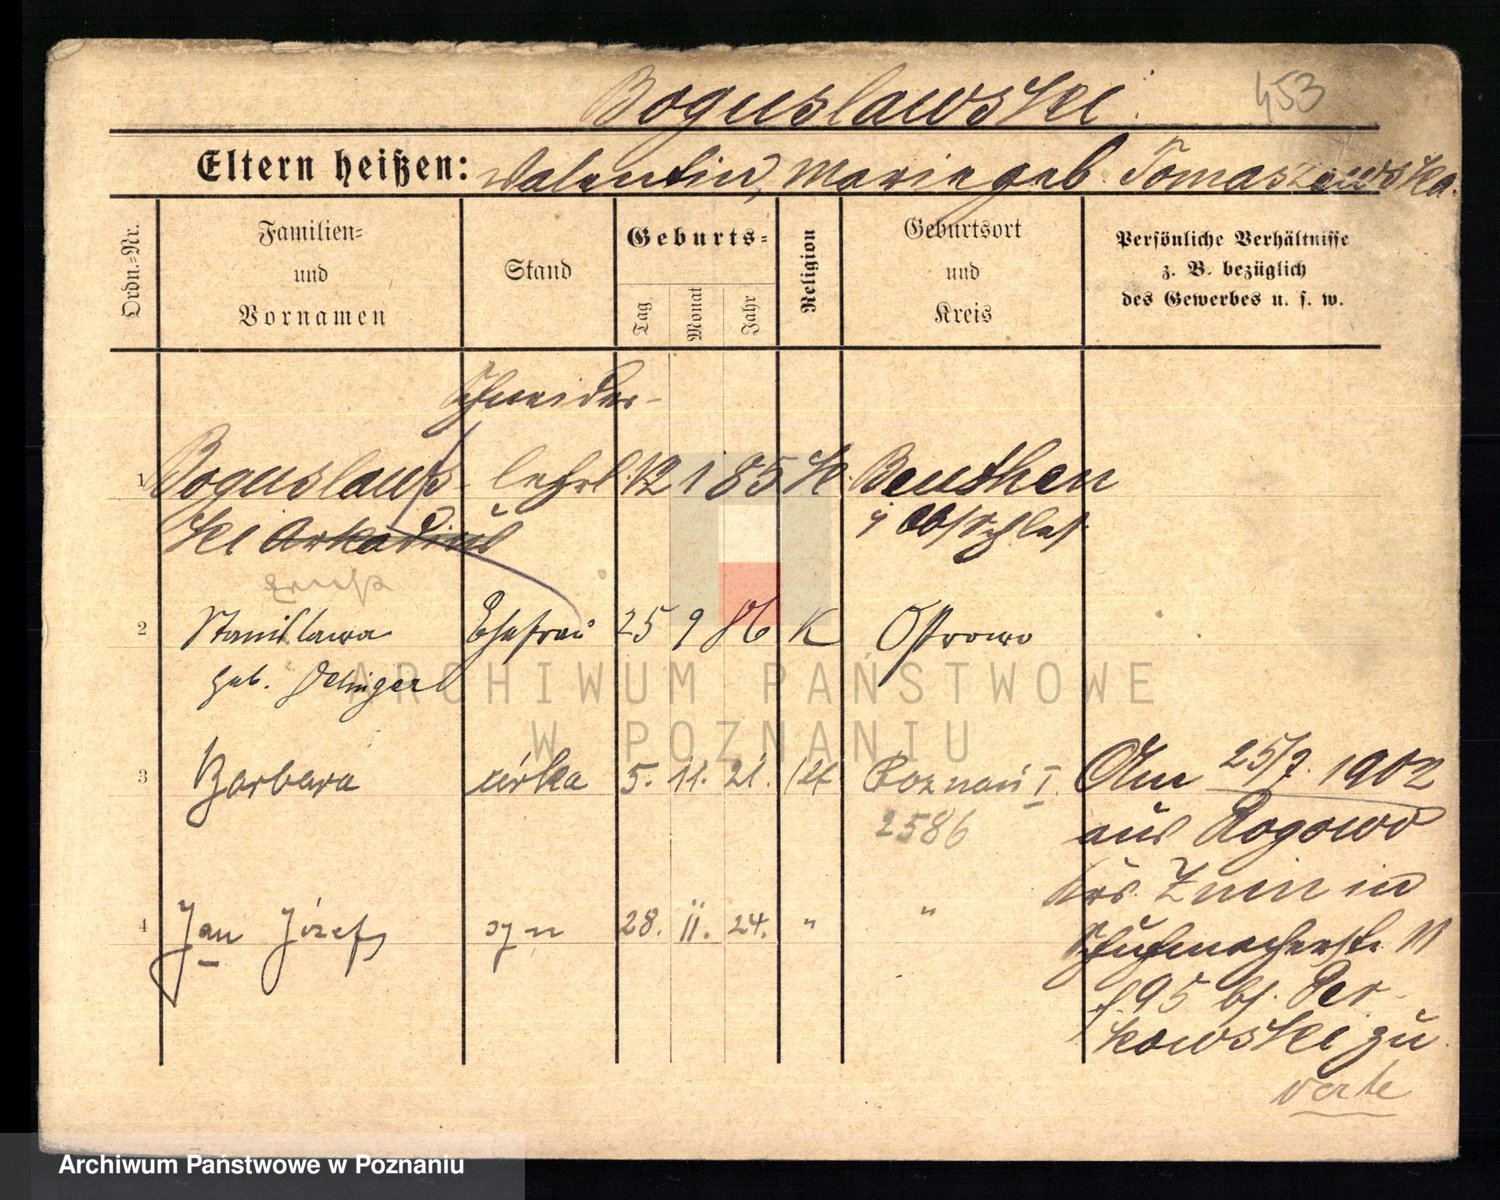 Boguslawski
453
Eltern heißen: Valentin, Marie geb Tomaszewska.
Ordn.-Nr.
Familien-
und
Vornamen
Stand
Geburts-
Tag
Monat
Jahr
Religion
Geburtsort
und
Kreis
Persönliche Verhältnisse
z. B. bezüglich
des Gewerbes u. s. w.
Schneider-
1 Boguslaws- lehrl. 12 1 85 K. Beuthen
ki Arkadius
2 Stanislawa Ehefrau 25 9 86 K Ostrowo
geb.
ARCHIWUM PAŃSTWOWE
W POZNANIU
3 Barbara córka 5. 11. 21. kt Poznań I.
2586
Am 25/7. 1902
aus Rogowo
Krs. Znin in
Schuhmacherstr. 11
4 Jan Józef syn 28. II. 24. " "
f. 95 bj. Per-
kowski zu
verte
Archiwum Państwowe w Poznaniu